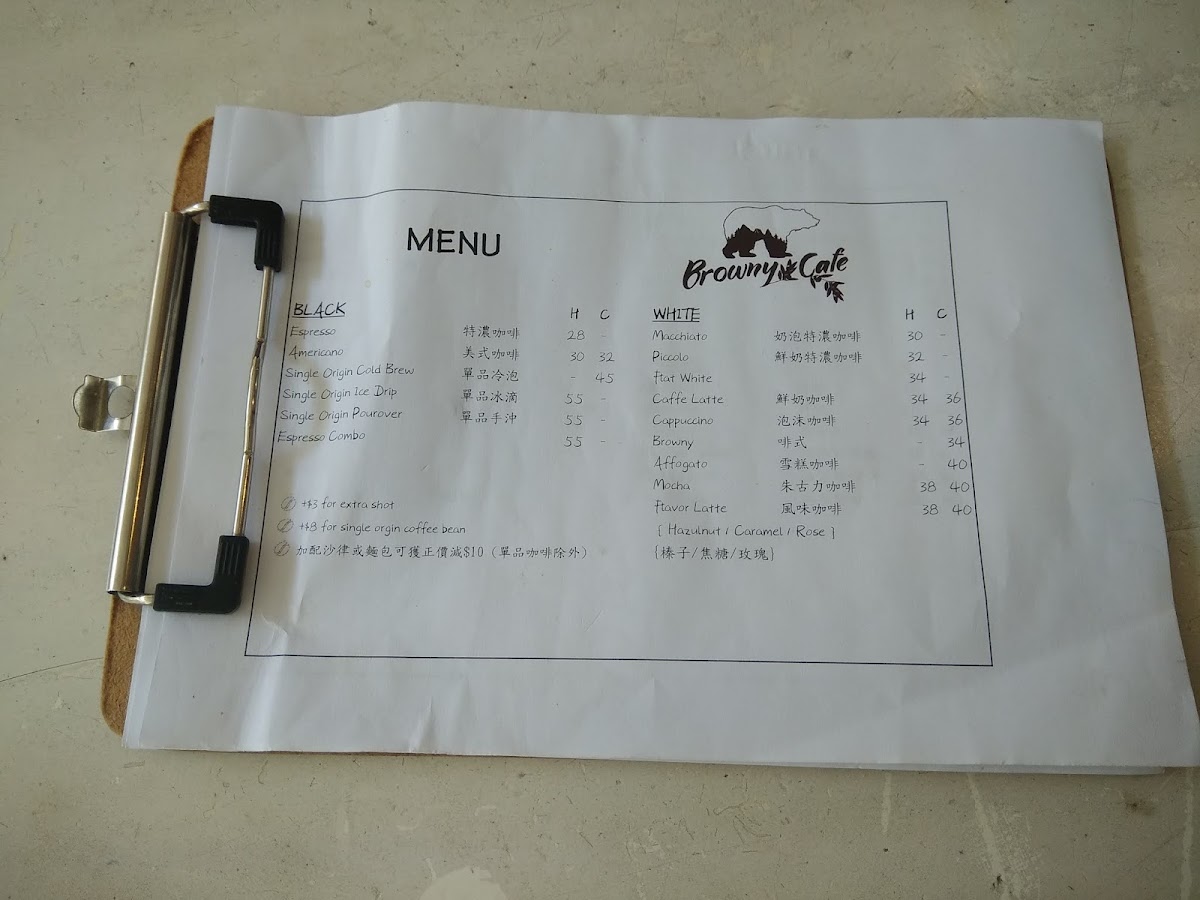 MENU
Browny Cafe
BLACK H C
Espresso 特濃咖啡 28 -
Americano 美式咖啡 30 32
Single Origin Cold Brew 單品冷泡 - 45
Single Origin Ice Drip 單品冰滴 55 -
Single Origin Pourover 單品手沖 55 -
Espresso Combo 55 -
+$3 for extra shot
+$8 for single orgin coffee bean
加配沙律或麵包可獲正價減$10 (單品咖啡除外)
WHITE H C
Macchiato 奶泡特濃咖啡 30 -
Piccolo 鮮奶特濃咖啡 32 -
flat White 34 -
Caffe Latte 鮮奶咖啡 34 36
Cappuccino 泡沫咖啡 34 36
Browny 啡式 - 34
Affogato 雪糕咖啡 - 40
Mocha 朱古力咖啡 38 40
flavor Latte 風味咖啡 38 40
{ Hazulnut / Caramel / Rose }
{榛子/焦糖/玫瑰}